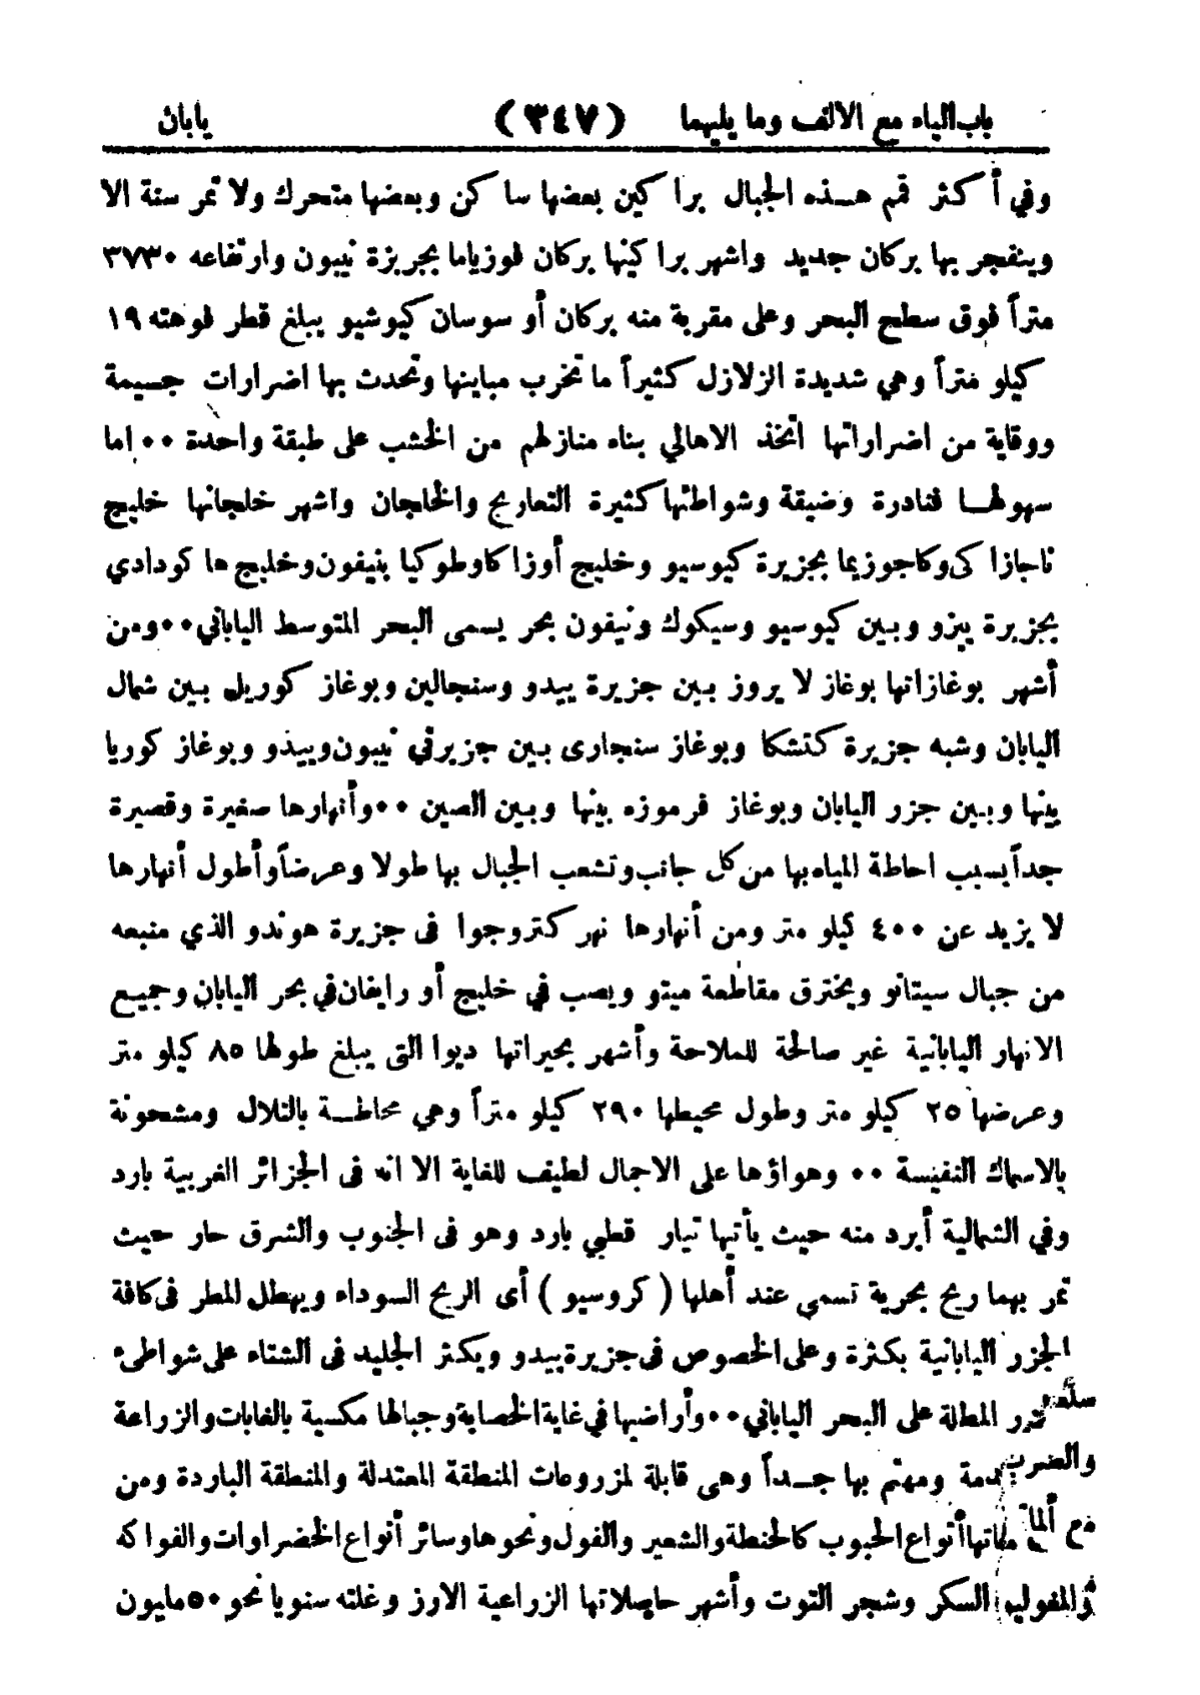 باب الياء مع الالف وما يليهما (٣٤٧) يابان
وفي أكثر قمم هـذه الجبال براكين بعضها ساكن وبعضها متحرك ولا تمر سنة الا
وينفجر بها بركان جديد واشهر براكينها بركان فوزياما بجريزة نيبون وارتفاعه ٣٧٣٠
متراً فوق سطح البحر وعلى مقربة منه بركان أو سوسان كيوشيو يبلغ قطر فوهته ١٩
كيلو متراً وهي شديدة الزلازل كثيراً ما تخرب مباينها وتحدث بها اضرارات جسيمة
ووقاية من اضراراتها اتخذ الاهالي بناء منازلهم من الخشب على طبقة واحدة ٠٠ اما
سهولهـا فنادرة وضيقة وشواطئها كثيرة التعاريج والخلجان واشهر خلجانها خليج
ناجازاكى وكاجوزيما بجزيرة كيوسيو وخليج أوزاكا وطوكيا بنيفون وخليج هاكودادي
بجزيرة ييزو وبين كيوسيو وسيكوك ونيفون بحر يسمى البحر المتوسط الياباني ٠٠ ومن
أشهر بوغازاتها بوغاز لا يروز بين جزيرة ييدو وسنجالين وبوغاز كوريل بين شمال
اليابان وشبه جزيرة كتشكا وبوغاز سنجارى بين جزيرتي نيبون وييذو وبوغاز كوريا
بينها وبين جزر اليابان وبوغاز فرموزه بينها وبين الصين ٠٠ وأنهارها صغيرة وقصيرة
جداً بسبب احاطة المياه بها من كل جانب وتشعب الجبال بها طولا وعرضاً وأطول أنهارها
لا يزيد عن ٤٠٠ كيلو متر ومن أنهارها نهر كتروجوا فى جزيرة هوندو الذي منبعه
من جبال سيتانو ويخترق مقاطعة ميتو ويصب في خليج أو رايغان في بحر اليابان وجميع
الانهار اليابانية غير صالحة للملاحة وأشهر بحيراتها ديوا التى يبلغ طولها ٨٥ كيلو متر
وعرضها ٢٥ كيلو متر وطول محيطها ٢٩٠ كيلو متراً وهي محاطـة بالتلال ومشحونة
بالاسماك النفيسة ٠٠ وهواؤها على الاجمال لطيف للغاية الا انه فى الجزائر الغربية بارد
وفي الشمالية أبرد منه حيث يأتيها تيار قطبي بارد وهو فى الجنوب والشرق حار حيث
تمر بهما ريح بحرية تسمي عند أهلها ( كروسيو ) أى الريح السوداء ويهطل المطر فى كافة
الجزر اليابانية بكثرة وعلى الخصوص فى جزيرة ييدو ويكثر الجليد فى الشتاء على شواطىء
المطالة على البحر الياباني ٠٠ وأراضيها في غاية الخصاية وجبالها مكسية بالغابات والزراعة
ومهتم بها جـداً وهى قابلة لمزروعات المنطقة المعتدلة والمنطقة الباردة ومن
أنواع الحبوب كالحنطة والشعير والفول ونحوها وسائر أنواع الخضراوات والفواكه
السكر وشجر التوت وأشهر حاصلاتها الزراعية الارز وغلته سنويا نحو ٥٠ مليون